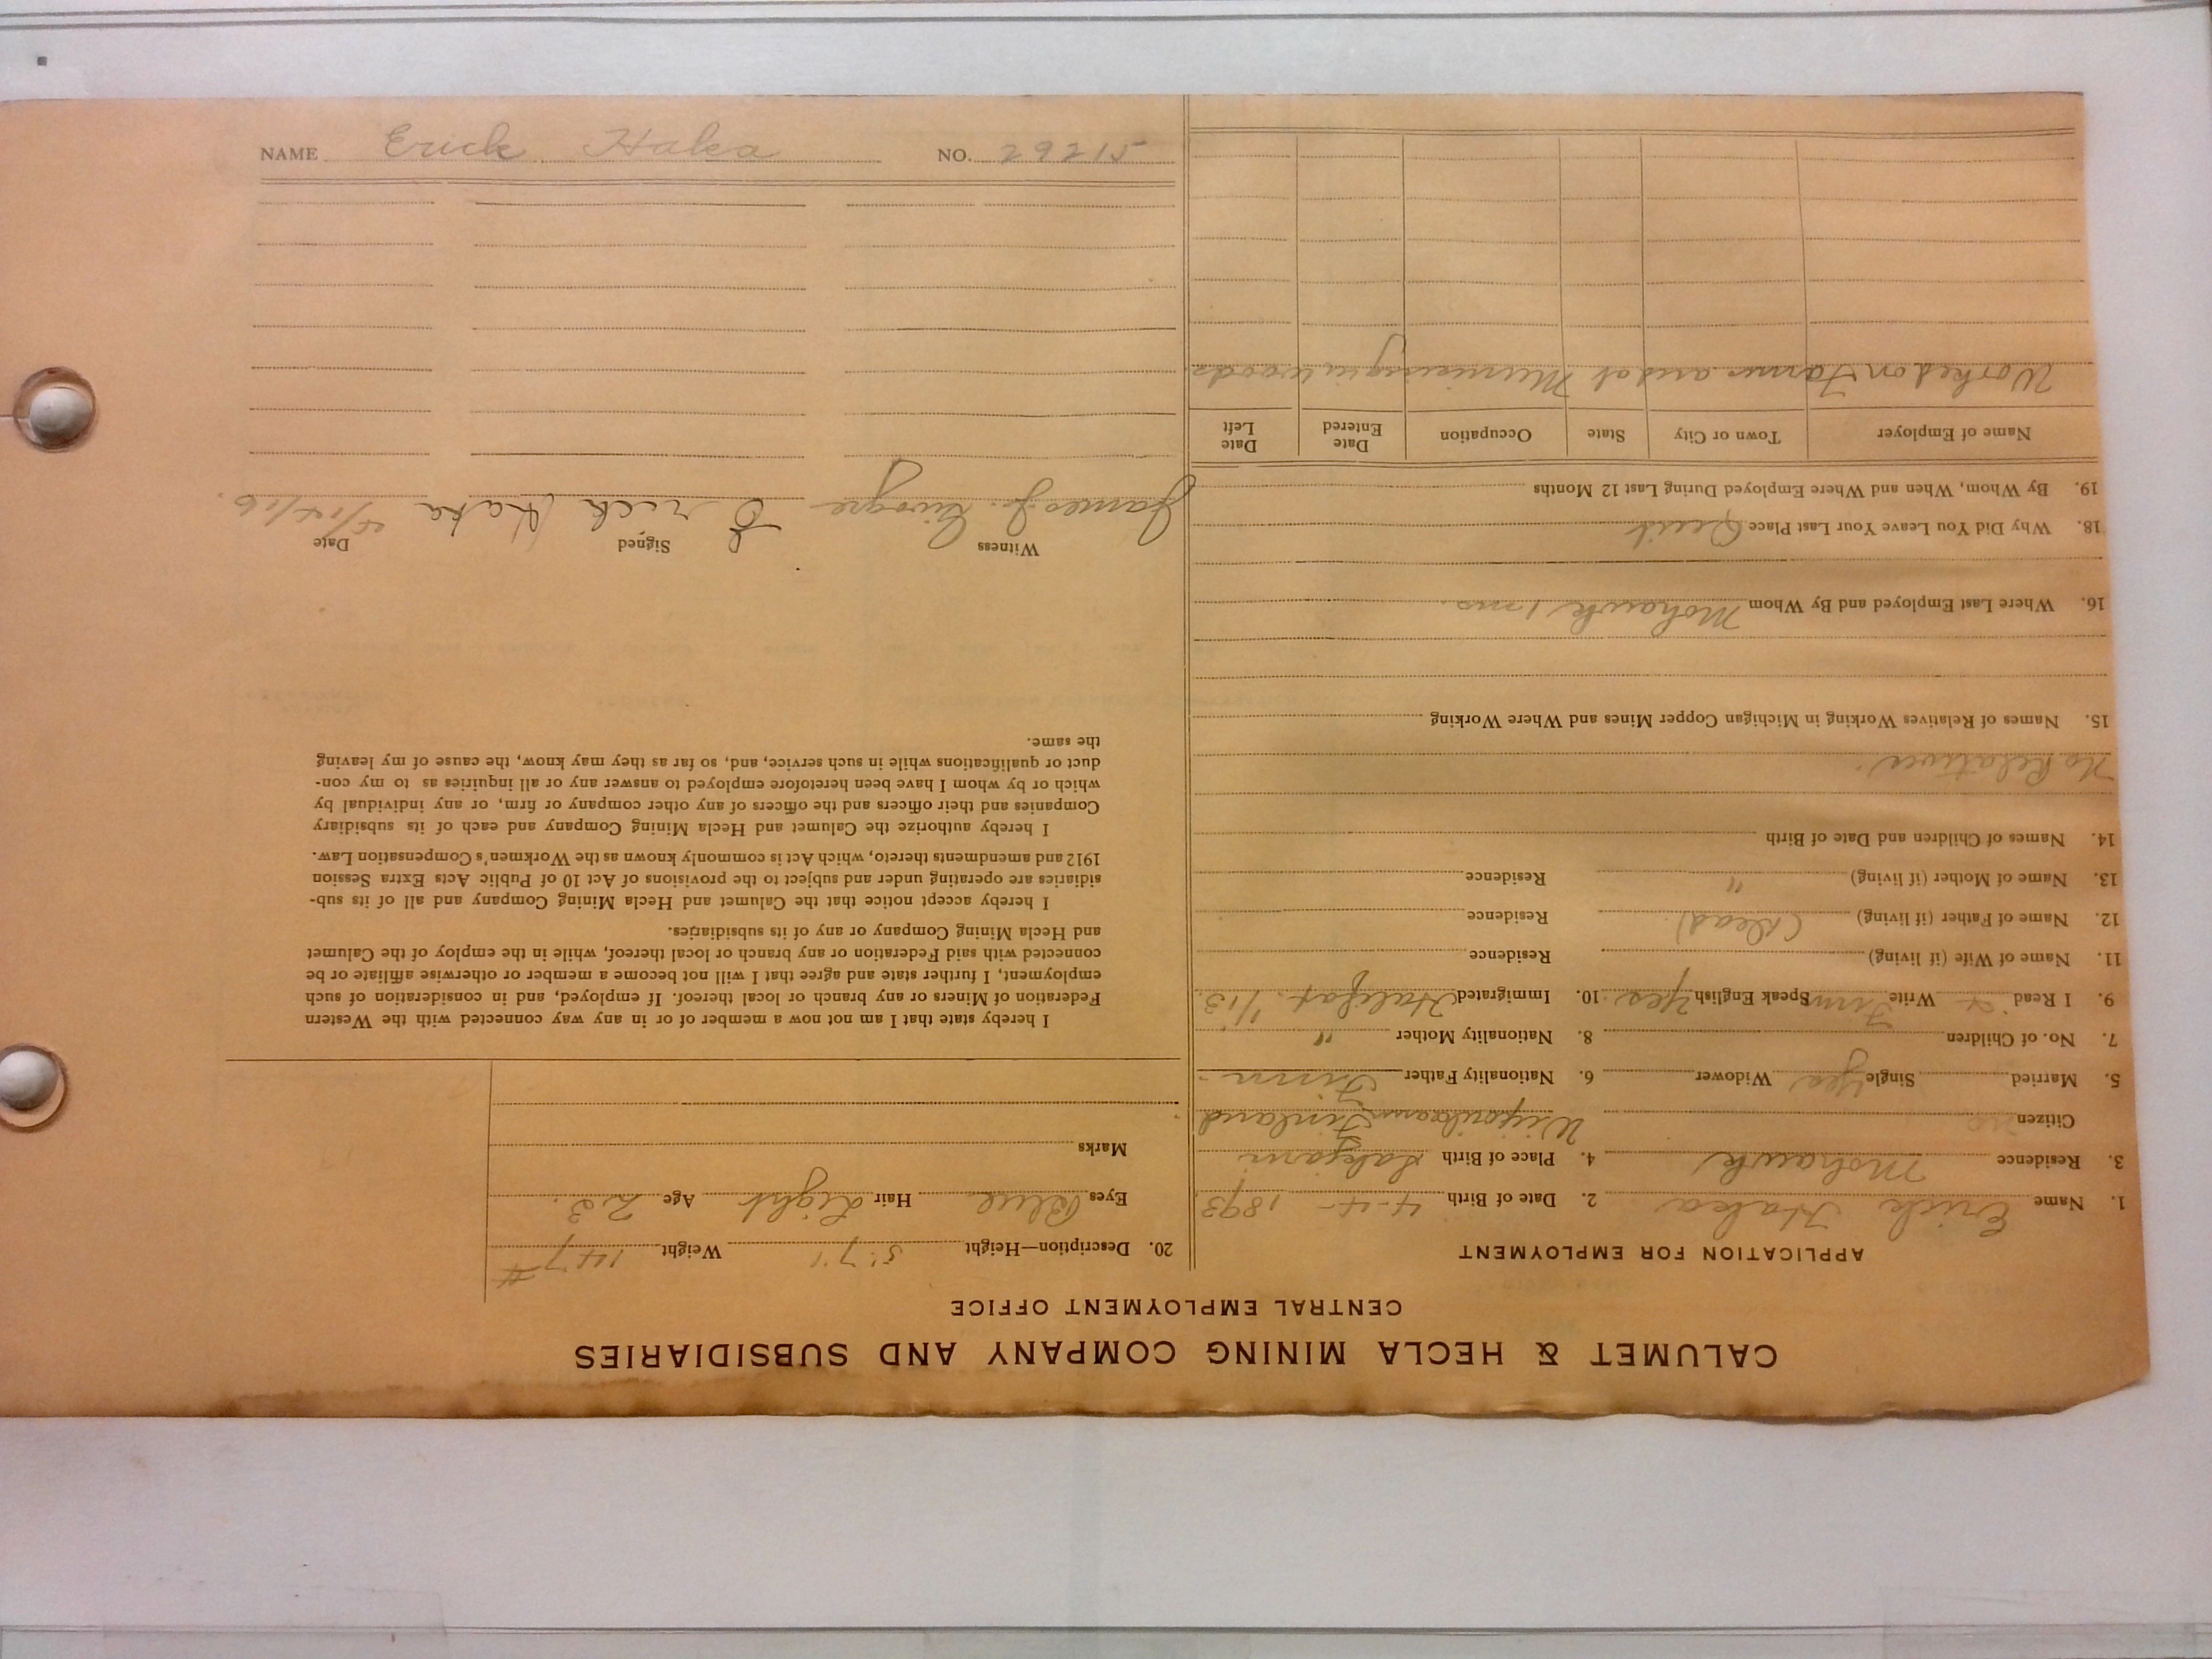 CALUMET & HECLA MINING COMPANY AND SUBSIDIARIES
CENTRAL EMPLOYMENT OFFICE
APPLICATION FOR EMPLOYMENT
1. Name Erick Haka 2. Date of Birth 4-4-1893
3. Residence Mohawk 4. Place of Birth Sakjarvi
Citizen no Finland
5. Married Single Yes Widower 6. Nationality Father Finn
7. No. of Children 8. Nationality Mother "
9. I Read Write Finn Speak English Yes. 10. Immigrated Halifax. 1/13.
11. Name of Wife (if living) Residence
12. Name of Father (if living) (Dead) Residence
13. Name of Mother (if living) " Residence
14. Names of Children and Date of Birth
No Relatives.
15. Names of Relatives Working in Michigan Copper Mines and Where Working
16. Where Last Employed and By Whom Mohawk 1 mo.
18. Why Did You Leave Your Last Place Quit
19. By Whom, When and Where Employed During Last 12 Months
Name of Employer Town or City State Occupation Date Entered Date Left
Worked on Farms and at Munising in woods
20. Description—Height 5'7" Weight 147#
Eyes Blue Hair Light Age 23.
Marks
I hereby state that I am not now a member of or in any way connected with the Western
Federation of Miners or any branch or local thereof. If employed, and in consideration of such
employment, I further state and agree that I will not become a member or otherwise affiliate or be
connected with said Federation or any branch or local thereof, while in the employ of the Calumet
and Hecla Mining Company or any of its subsidiaries.
I hereby accept notice that the Calumet and Hecla Mining Company and all of its sub-
sidiaries are operating under and subject to the provisions of Act 10 of Public Acts Extra Session
1912 and amendments thereto, which Act is commonly known as the Workmen's Compensation Law.
I hereby authorize the Calumet and Hecla Mining Company and each of its subsidiary
Companies and their officers and the officers of any other company or firm, or any individual by
which or by whom I have been heretofore employed to answer any or all inquiries as to my con-
duct or qualifications while in such service, and, so far as they may know, the cause of my leaving
the same.
Witness Signed Date
James J. Erick Haka /14/16.
NAME Erick Haka NO. 29215